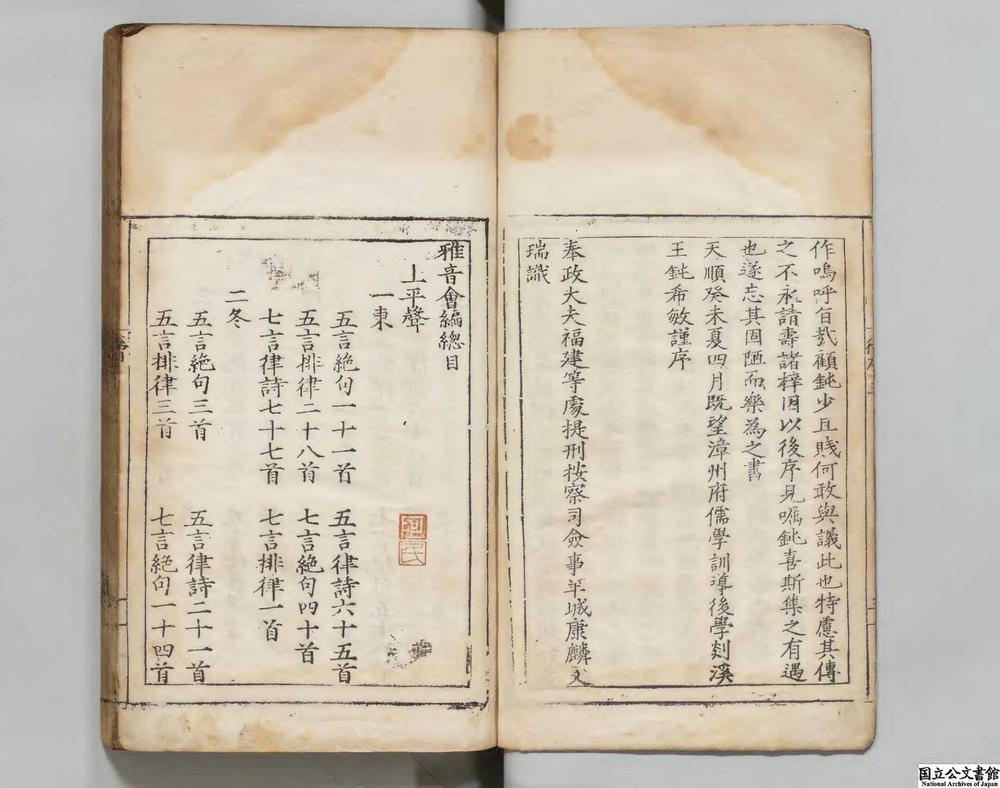 作嗚呼旨哉顧鈍少且賤何敢與議此也特慮其傳
之不永請壽諸梓因以後序見囑鈍喜斯集之有遇
也遂忘其固陋而樂為之書
天順癸未夏四月既望漳州府儒學訓導後學剡溪
王鈍希敏謹序
奉政大夫福建等處提刑按察司僉事羊城康麟文
瑞識
雅音會編總目
上平聲
一東
五言絶句一十一首 五言律詩六十五首
五言排律二十八首 七言絶句四十首
七言律詩七十七首 七言排律一首
二冬
五言絶句三首 五言律詩二十一首
五言排律三首 七言絶句一十四首
国立公文書館
National Archives of Japan